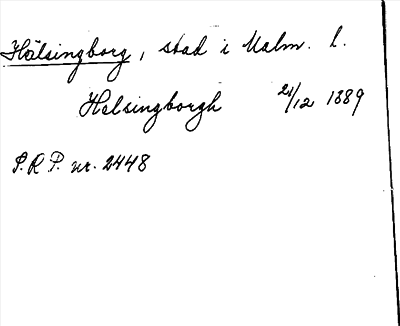 Hälsingborg, stad i Malm. l.
Helsingborgh 21/12 1889
P.R.P. nr. 2448